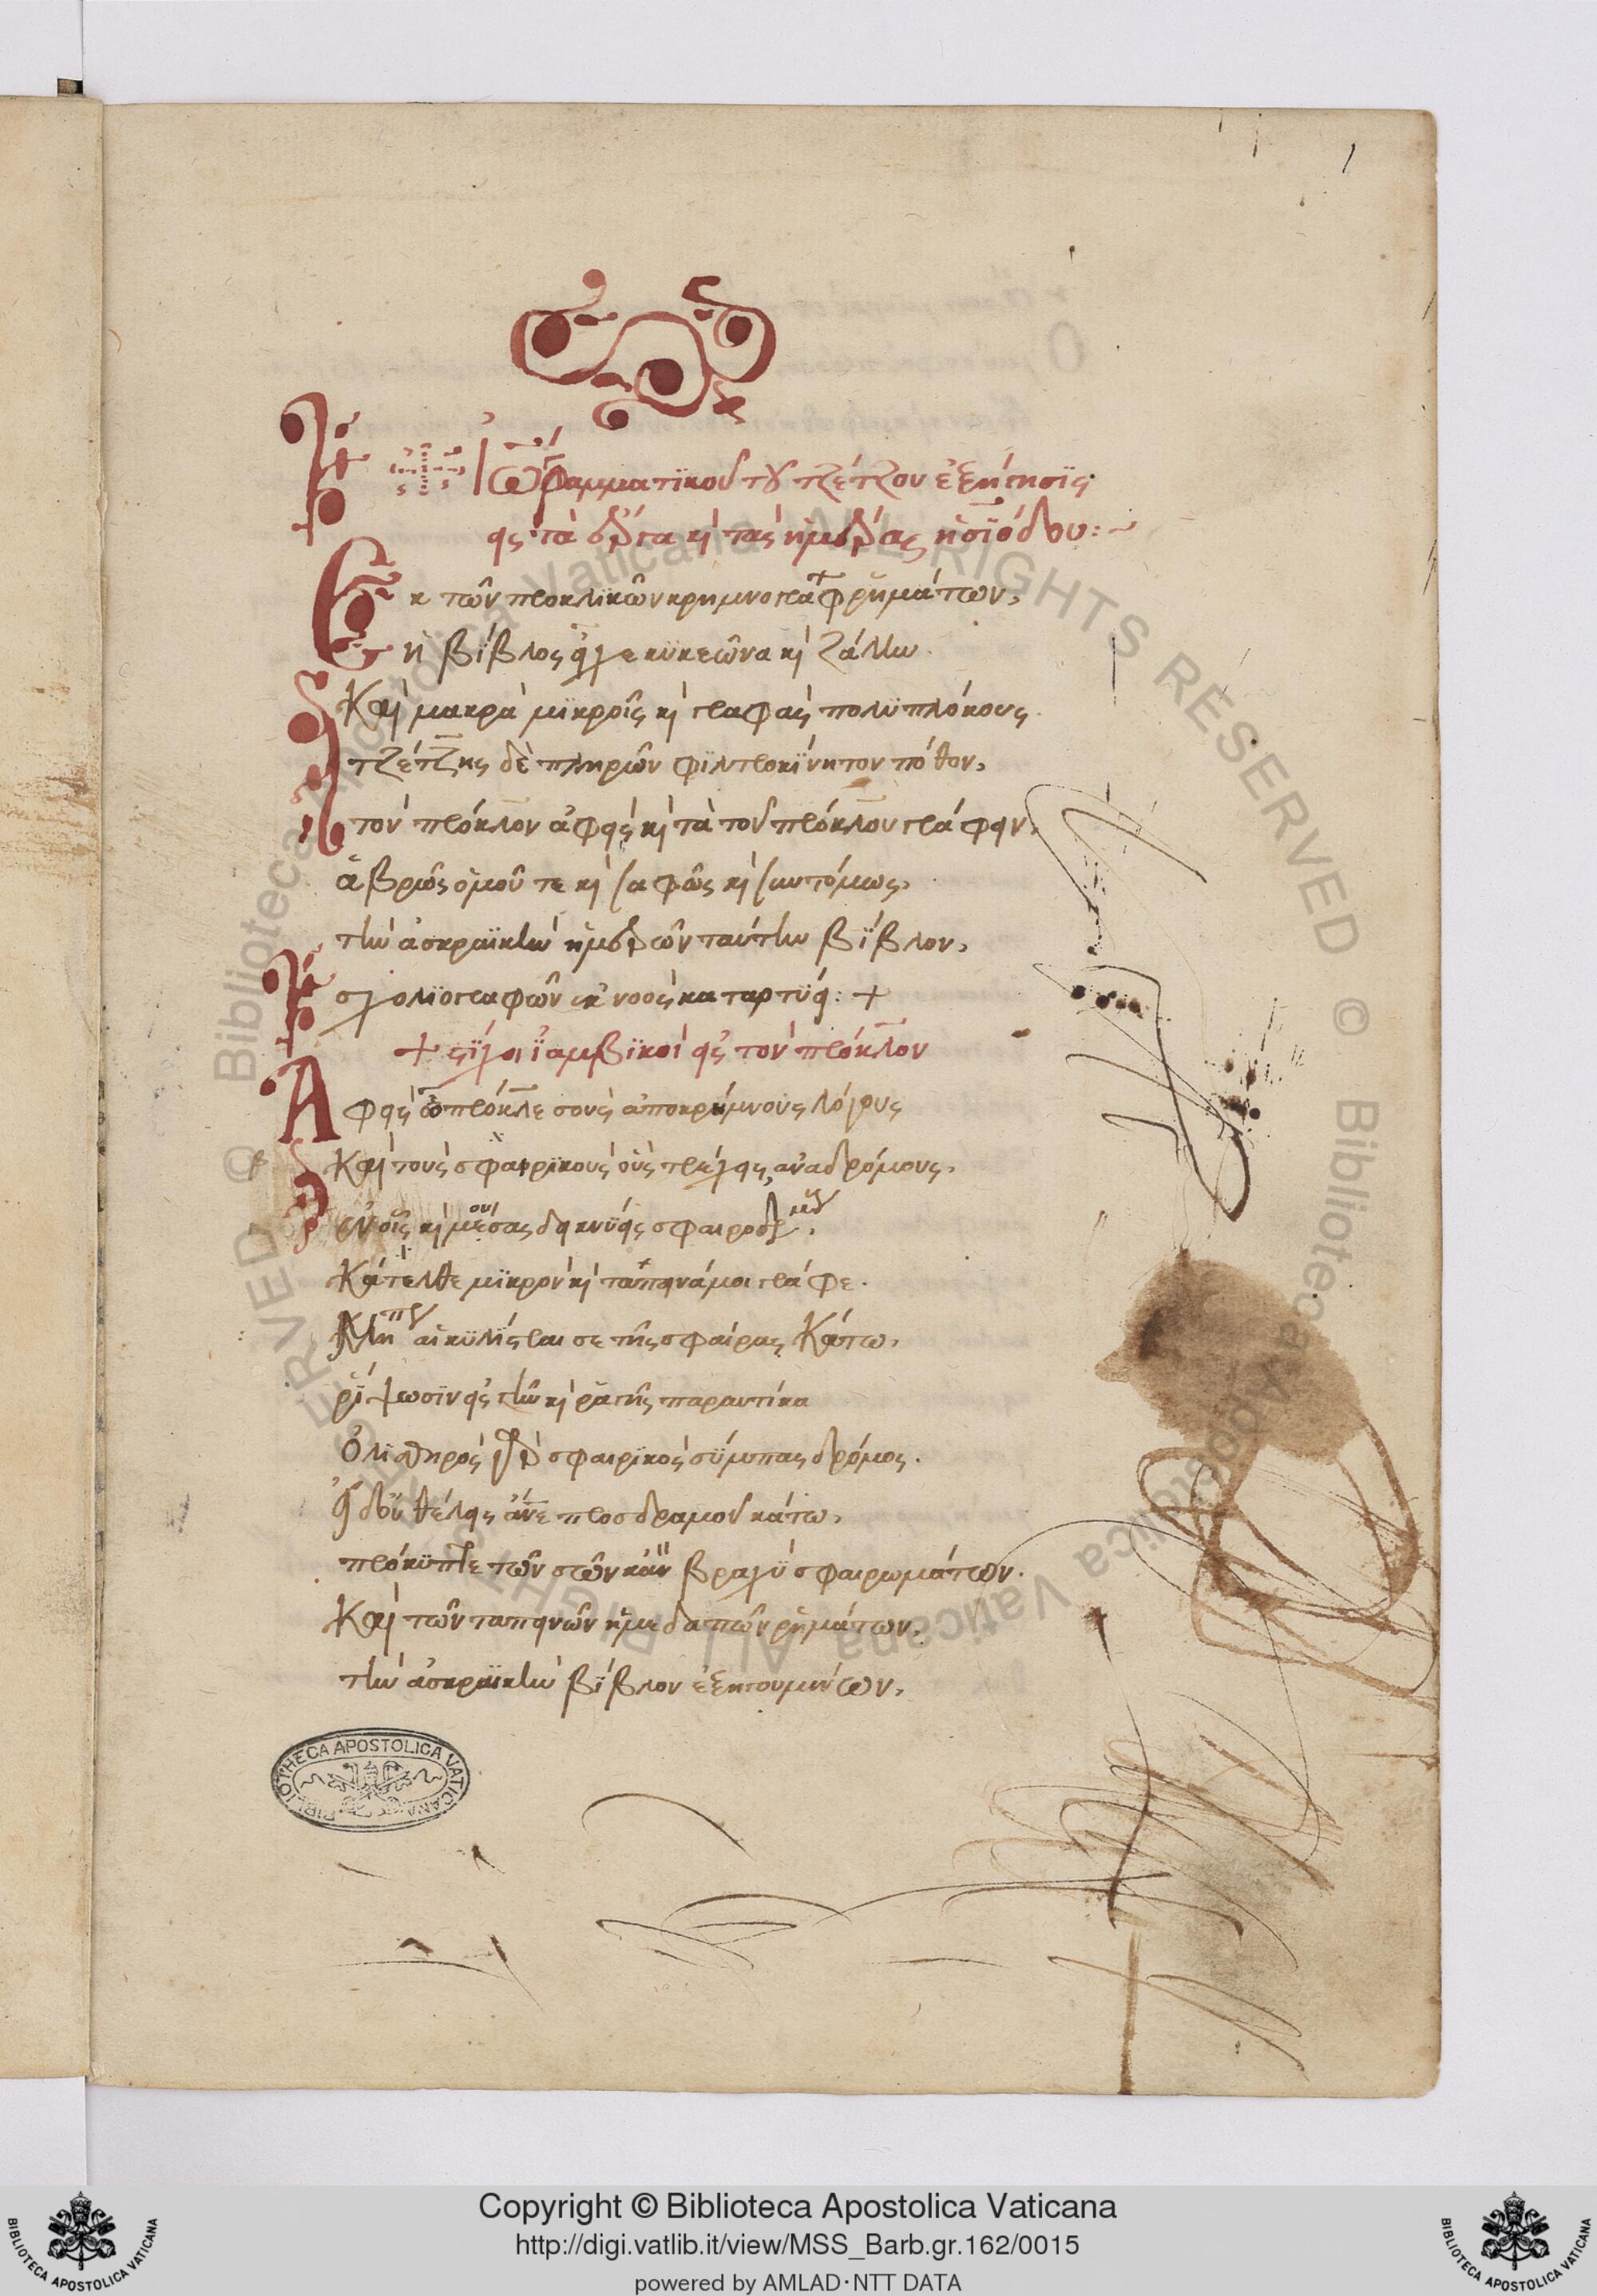 Ἰω γραμματικοῦ τοῦ τζέτζου ἐξήγησις
εἰς τὰ ἔργα καὶ τὰς ἡμέρας ἡσιόδου:~
Ἐκ τῶν προκλικῶν κρημνογραφ ρημάτων,
ἡ βίβλος εἶχε κυκεῶνα καὶ ζάλην.
Καὶ μακρὰ μικροῖς καὶ γραφὰς πολυπλόκους.
τζέτζης δὲ πληρῶν φιλτροκίνητον πόθον,
τὸν πρόκλον ἀφεὶς καὶ τὰ τοῦ πρόκλου γράφειν,
ἁβρῶς ὁμοῦ τε καὶ σαφῶς καὶ συντόμως,
τὴν ἀσκραϊκὴν ἡμερῶν ταύτην βίβλον,
σχολιογραφῶν ἐκ νοὸς καταρτύει: +
+ στίχοι ἰαμβικοὶ εἰς τὸν πρόκλον
Ἀφεὶς ὦ πρόκλε σοὺς ἀποκρήμνους λόγους
Καὶ τοὺς σφαιρικοὺς οὓς τρέχεις ἀναδρόμους,
ἐν οἷς καὶ μούσας δεικνύεις σφαιρο
Κάτελθε μικρὸν καὶ ταπεινά μοι γράφε.
Μή αἱ κυλίστραι σε τῆς σφαίρας Κάτω,
ῥίψωσιν εἰς γῆν καὶ ραγῆς παραυτίκα
Ὀλισθηρὸς γὰρ σφαιρικὸς σύμπας δρόμος.
Εἰ δ' οὐ θέλεις ἄνε προσδραμοῦ κάτω,
πρόκυπτε τῶν σῶν κἂν βραχὺ σφαιρωμάτων.
Καὶ τῶν ταπεινῶν ἡμεδαπῶν ρημάτων,
τὴν ἀσκραϊκὴν βίβλον ἐξηγουμένων,
BIBLIOTHECA APOSTOLICA VATICANA
© Biblioteca Apostolica Vaticana ALL RIGHTS RESERVED © Biblioteca Apostolica Vaticana ALL RIGHTS RESERVED
Copyright © Biblioteca Apostolica Vaticana
http://digi.vatlib.it/view/MSS_Barb.gr.162/0015
powered by AMLAD·NTT DATA
BIBLIOTECA APOSTOLICA VATICANA
BIBLIOTECA APOSTOLICA VATICANA